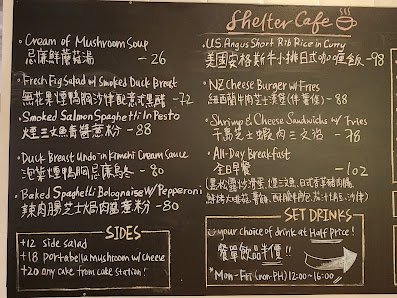 Shelter Cafe
• Cream of Mushroom Soup
忌廉鮮蘑菇湯 - 26
• Fresh Fig Salad w/ Smoked Duck Breast
無花果煙鴨胸沙律配意式黑醋 - 72
• Smoked Salmon Spaghetti In Pesto
煙三文魚青醬意粉 - 88
• Duck Breast Udon in Kimchi Cream Sauce
泡菜煙鴨胸忌廉烏冬 - 80
• Baked Spaghetti Bolognaise W/ Pepperoni
辣肉腸芝士焗肉醬意粉 - 80
SIDES
+12 side salad
+18 portabella mushroom w/ cheese
+20 any cake from cake station!
• U.S. Angus Short Rib Rice in Curry
美國安格斯牛小排日式咖喱飯 - 98
• NZ Cheese Burger w/ Fries
紐西蘭牛肉芝士漢堡(伴薯條) - 88
• Shrimp & Cheese Sandwich w/ Fries
芝士蝦肉三文治 - 78
• All-Day Breakfast
全日早餐 - 102
SET DRINKS
your choice of drink at Half Price!
餐單飲品半價!!
*Mon-Fri (non-PH) 12:00~16:00